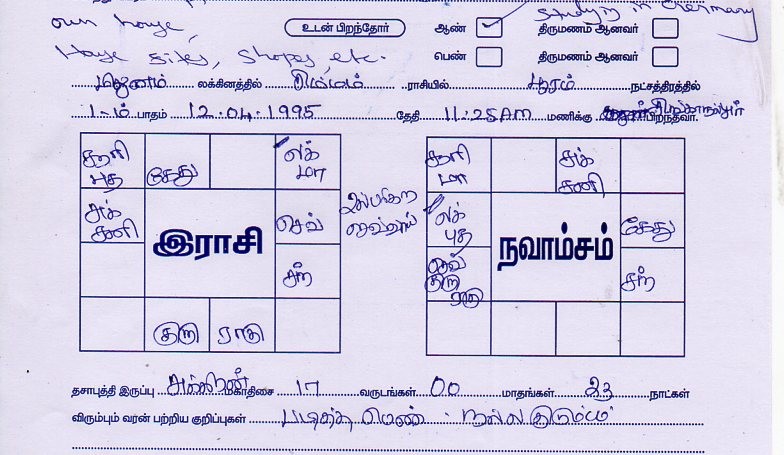 own house,
studying in Germany
உடன் பிறந்தோர் ஆண் திருமணம் ஆனவர்
House sites, Shops, etc.
பெண் திருமணம் ஆனவர்
மிதுனம் லக்கினத்தில் சிம்மம் ராசியில் பூரம் நட்சத்திரத்தில்
1-ம் பாதம் 12.04.1995 தேதி 11:25AM மணிக்கு பிறந்தவர்.
சூரி புத கேது லக் மா
சுக் சனி செவ்
இராசி
சந்
குரு ராகு
சூரி மா சுக் சனி
லக் புத கேது
நவாம்சம்
செவ் குரு ராகு சந்
தசாபுத்தி இருப்பு சுக்கிரன் மகாதிசை 17 வருடங்கள் 00 மாதங்கள் 23 நாட்கள்
விரும்பும் வரன் பற்றிய குறிப்புகள் படித்த பெண். நல்ல குடும்பம்